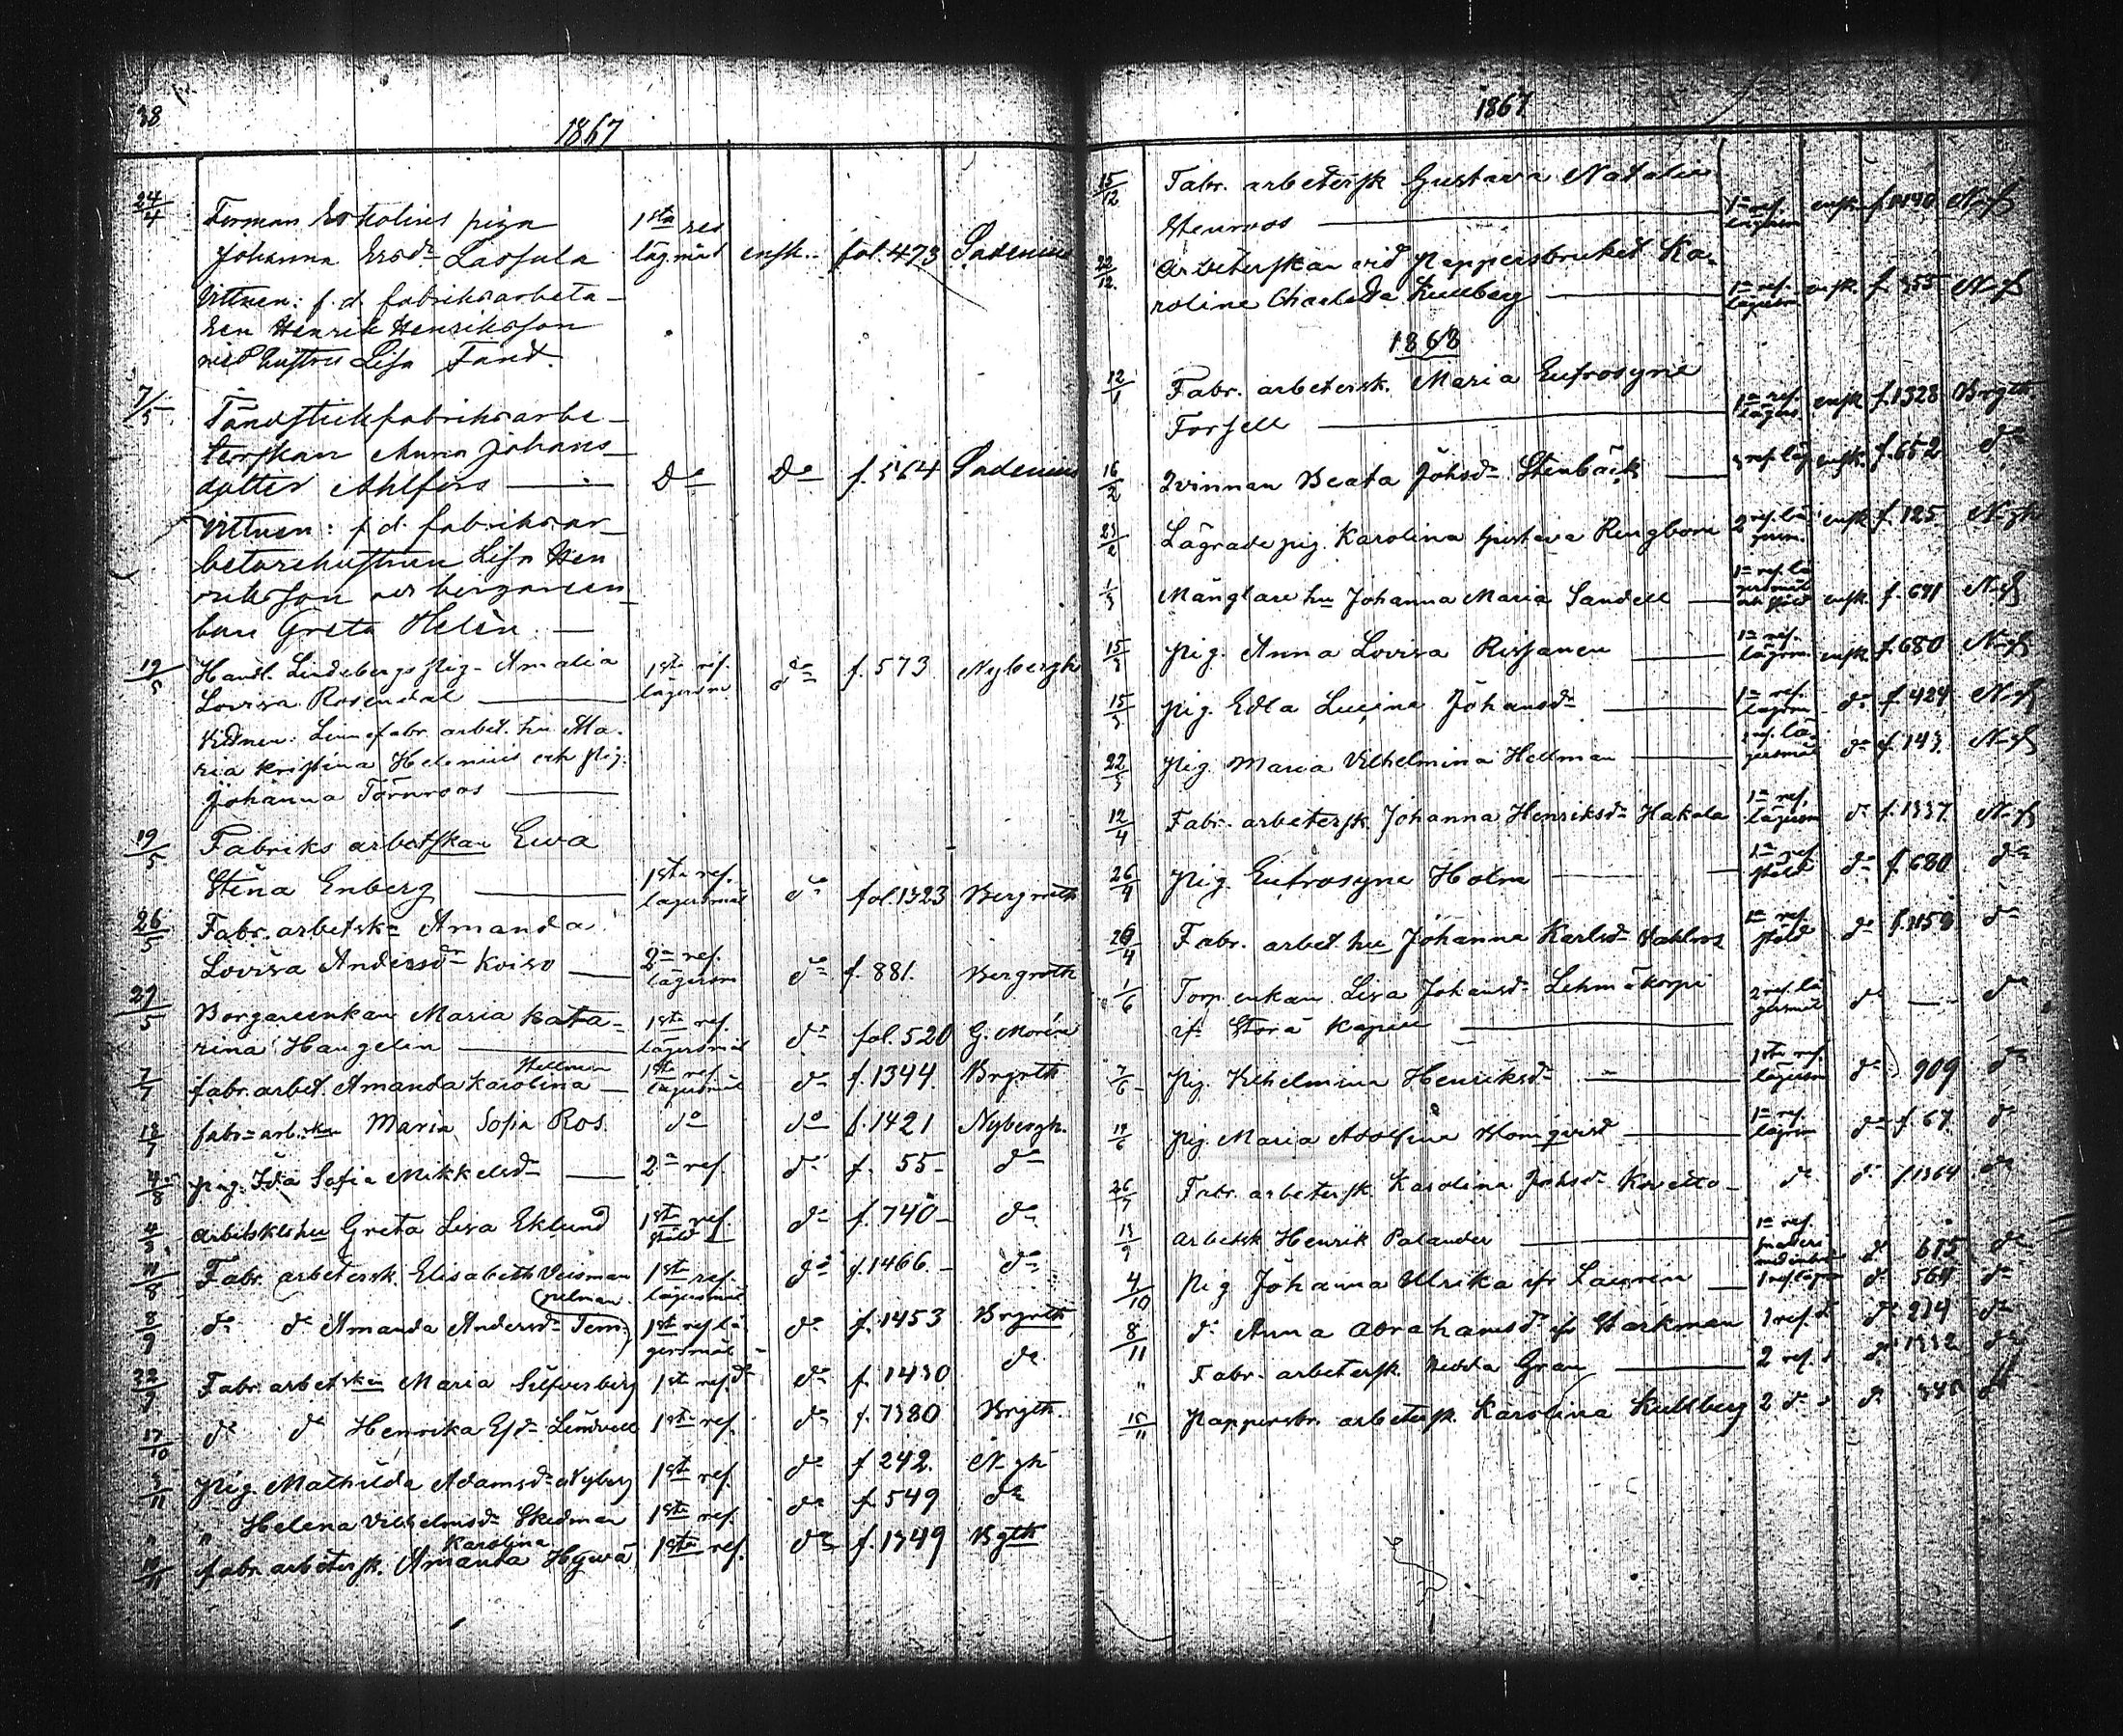 38
1867
24/4 Forman Eskolins piga 1sta res
Johanna Ersdr Lassula lägmål ensk. fol. 473 Sadenius
Vittnen: f.d. fabriksarbeta-
ren Henrik Henriksson
med hustru Lisa Fand.
7/5 Tändstickfabriksarbe-
terskan Anna Johans-
dotter Ahlfors do do f. 564 Sadenius
Vittnen: f.d. fabriksar-
betarehustrun Lisa Hen
riksson och borgareen-
kan Greta Helén
19/5 Handl. Lindebergs pig. Amalia 1sta ref. do f. 573 Nybergh
Lovisa Rosendal lägersm
Vidnen: Linnefabr. arbet. hu Ma-
ria Kristina Helenius och pig.
Johanna Törnroos
19/5 Fabriks arbetskan Eva
Stina Enberg 1sta ref. lägersmål do fol. 1323 Bergroth
26/5 Fabr. arbetsk Amanda
Lovisa Andersdr Koivo 2a ref. lägersm do f. 881. Bergroth
27/5 Borgareenkan Maria Kata-
rina Haugelin 1sta ref. lägersmål do fol. 520 G. Morén
7/7 fabr. arbet. Amanda Karolina Hellman 1sta ref lägersmål do f. 1344. Brgrth
fabr arb.skan Maria Sofia Ros. do do f. 1421 Nybergh.
4/8 pig. Ida Sofia Mikkelsdr 2a ref. do f. 55 do
arbetsklhu Greta Lisa Eklund 1sta ref. stöld do f. 740 do
11/8 Fabr. arbetersk. Elisabeth Veisman 1sta ref. lägersmål do f. 1466. do
8/9 do do Amanda Andersdr Tem-pelman 1sta ref lägersmål do f. 1453 Brgrth
22/9 Fabr. arbetskan Maria Silfversberg 1sta ref. do do f. 1430 do
17/10 do do Henrika Esdr Lindvell 1sta ref. do f. 1380 Brgth.
3/11 pig. Mathilda Adamsdr Nyberg 1sta ref. do f. 242. N-gh
" " Helena Vilhelmsdr Skedman 1sta ref. do f. 549 do
10/11 fabr. arbetersk. Amanda Karolina Hyvä 1sta ref. do f. 1349 Bgth
1867
15/12 Fabr. arbetersk Gustava Natalia
Stenroos 1a ref. lägersm ensk. N-gh
22/12 Arbeterskan vid Pappersbruket Ka-
rolina Charlotta Kullberg 1a ref. lägersm ensk. f. 355 N-gh
1868
12/1 Fabr. arbetersk. Maria Eufrosyne
Forsell 1a ref. lägers. ensk f. 1328 Brgth.
16/2 Qvinnan Beata Johsdr Stenbäck ref. läg ensk. f. 652 do
23/2 Lägrade pig. Karolina Gustava Rengbom 2 ref. lägersm. ensk f. 125 N-gh
1/3 Månglare hu Johanna Maria Sandell 1a ref. lägersmål och stöld ensk. f. 691 N-gh
15/3 Pig. Anna Lovisa Rissanen 1a ref. lägersm ensk f. 680 N-gh
15/3 pig. Edla Lucina Johansdr 1a ref. lägersm do f. 424 N-gh
22/3 pig. Maria Vilhelmina Hellman ref. lägersmål do f. 143. N-gh
12/4 Fabr. arbetersk. Johanna Henriksdr Hakala 1a ref. lägersm do f. 1337. N-gh
26/4 Pig. Eufrosyne Holm 1a ref stöld do f. 680 do
26/4 Fabr. arbet. hu Johanna Karlsdr Dahlroos 1a ref. stöld do do
1/6 Torp. enkan Lisa Johansdr Lehmäkorpi
ifr Storå Kapell 2 ref. lägersmål do do
7/6 pig. Vilhelmina Henriksdr 1sta ref. lägersm do 909 do
pig. Maria Adolfina Blomqvist 1a ref. lägersm do f. 67. do
26/7 Fabr. arbetersk. Karolina Johsdr Kovetto do do f. 1364 do
13/9 arbetsk Henrik Palander 1a ref. do 615 do
4/10 pig Johanna Ulrika ifr Laurin 1 ref. läg do 564 do
8/11 do Anna Abrahamsdr ifr Starkman 1 ref. do do 214 do
" Fabr. arbetersk. Hedda Gran 2 ref. do 1332 do
15/11 Pappersbr. arbetersk. Karolina Kullberg 2 do do 340 do